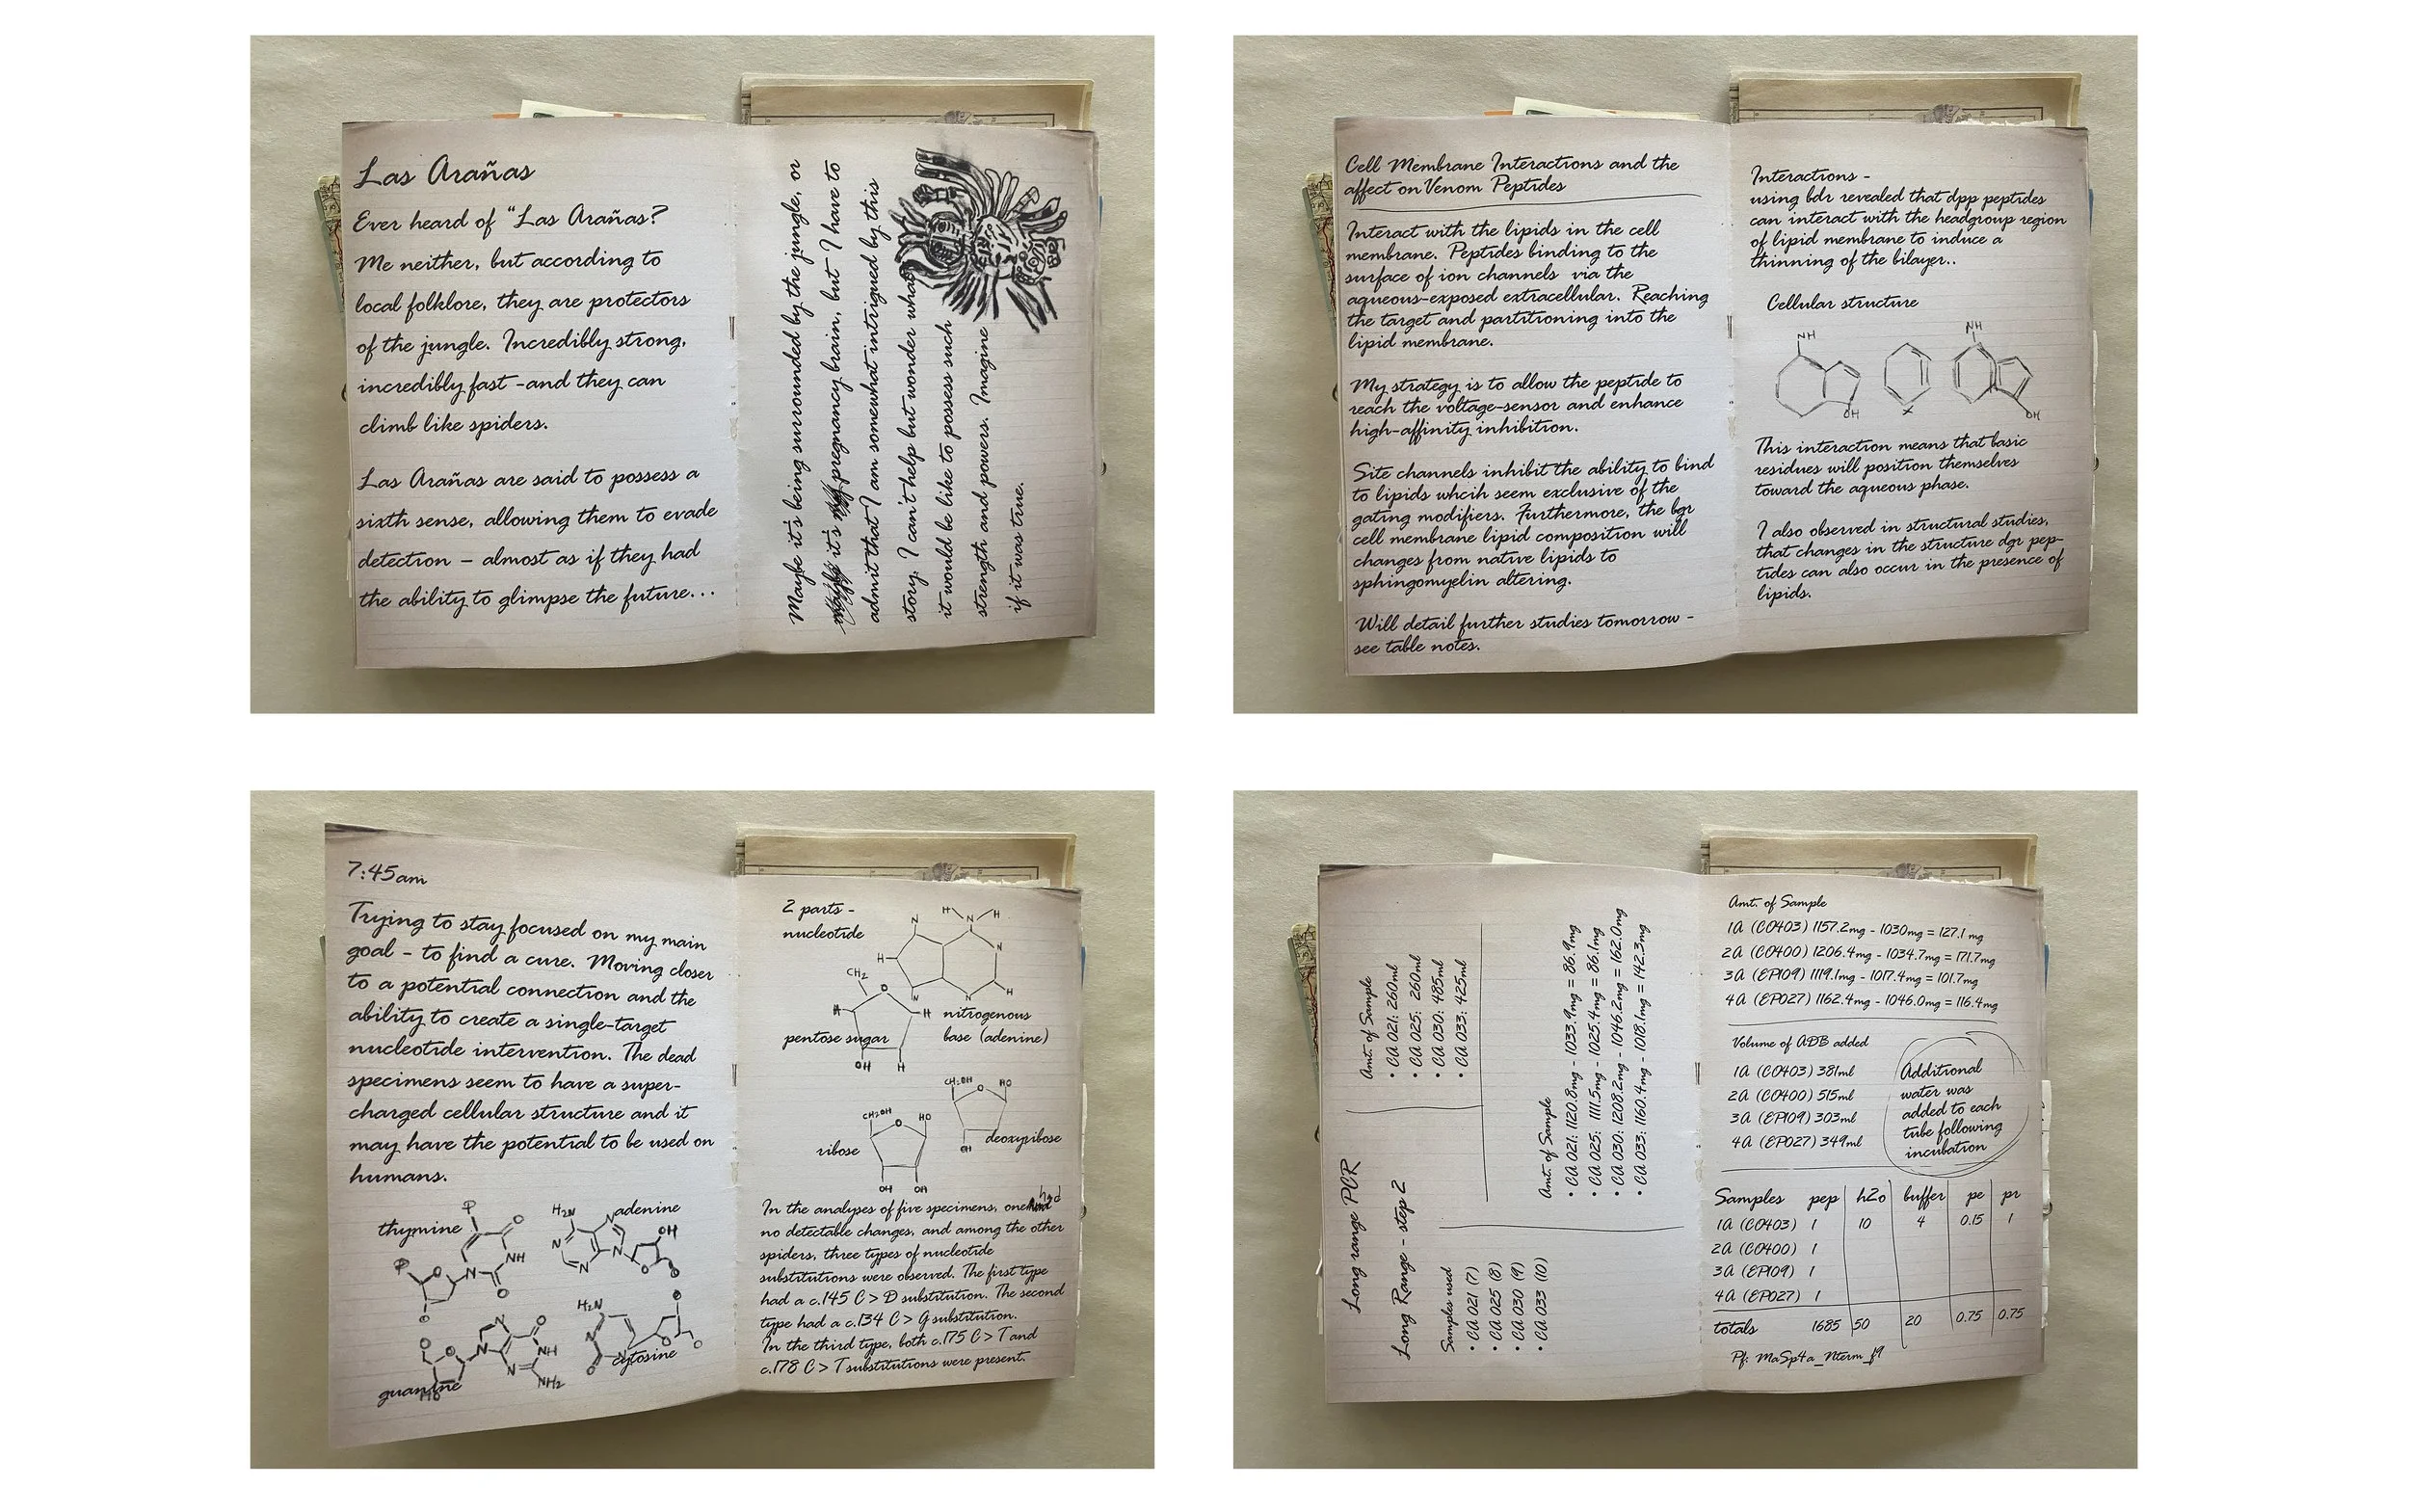 Las Arañas
Ever heard of "Las Arañas?
Me neither, but according to
local folklore, they are protectors
of the jungle. Incredibly strong,
incredibly fast -and they can
climb like spiders.
Las Arañas are said to possess a
sixth sense, allowing them to evade
detection - almost as if they had
the ability to glimpse the future...
Maybe it's being surrounded by the jungle, or
maybe it's my pregnancy brain, but I have to
admit that I am somewhat intrigued by this
story. I can't help but wonder what
it would be like to possess such
strength and powers. Imagine
if it was true.
Cell Membrane Interactions and the
affect on Venom Peptides
Interact with the lipids in the cell
membrane. Peptides binding to the
surface of ion channels via the
aqueous-exposed extracellular. Reaching
the target and partitioning into the
lipid membrane.
My strategy is to allow the peptide to
reach the voltage-sensor and enhance
high-affinity inhibition.
Site channels inhibit the ability to bind
to lipids whcih seem exclusive of the
gating modifiers. Furthermore, the bgr
cell membrane lipid composition will
changes from native lipids to
sphingomyelin altering.
Will detail further studies tomorrow -
see table notes.
Interactions -
using bdr revealed that dpp peptides
can interact with the headgroup region
of lipid membrane to induce a
thinning of the bilayer..
Cellular structure
NH
NH
OH
X
OH
This interaction means that basic
residues will position themselves
toward the aqueous phase.
I also observed in structural studies,
that changes in the structure dgr pep-
tides can also occur in the presence of
lipids.
7:45am
Trying to stay focused on my main
goal - to find a cure. Moving closer
to a potential connection and the
ability to create a single-target
nucleotide intervention. The dead
specimens seem to have a super-
charged cellular structure and it
may have the potential to be used on
humans.
thymine
P
O
NH
P
O
N
O
O
H2N
adenine
N
N
N
N
OH
O
O
guanine
O
O
HO
N
N
O
NH
N
NH2
H2N
cytosine
N
O
O
O
O
2 parts -
nucleotide
N
H
N
H
N
H
CH2
N
N
H
O
H
H
nitrogenous
base (adenine)
pentose sugar
OH
H
CH2OH
HO
O
deoxyribose
OH
CH2OH
HO
O
ribose
OH
OH
In the analyses of five specimens, one had
no detectable changes, and among the other
spiders, three types of nucleotide
substitutions were observed. The first type
had a c.145 C > D substitution. The second
type had a c.134 C > G substitution.
In the third type, both c.175 C > T and
c.178 C > T substitutions were present.
Long range PCR
Long Range - step 2
Samples used
• CA 021 (7)
• CA 025 (8)
• CA 030 (9)
• CA 033 (10)
Amt. of Sample
• CA 021: 260ml
• CA 025: 260ml
• CA 030: 485ml
• CA 033: 425ml
Amt. of Sample
• CA 021: 1120.8mg - 1033.9mg = 86.9mg
• CA 025: 1111.5mg - 1025.4mg = 86.1mg
• CA 030: 1208.2mg - 1046.2mg = 162.0mg
• CA 033: 1160.4mg - 1018.1mg = 142.3mg
Amt. of Sample
1A (CO403) 1157.2mg - 1030mg = 127.1 mg
2A (CO400) 1206.4mg - 1034.7mg = 171.7mg
3A (EP109) 1119.1mg - 1017.4mg = 101.7mg
4A (EP027) 1162.4mg - 1046.0mg = 116.4mg
Volume of ADB added
1A (CO403) 381ml
2A (CO400) 515ml
3A (EP109) 303ml
4A (EP027) 349ml
Additional
water was
added to each
tube following
incubation
Samples pep h2o buffer pe pr
1A (CO403) 1 10 4 0.15 1
2A (CO400) 1
3A (EP109) 1
4A (EP027) 1
totals 1685 50 20 0.75 0.75
Pf: MaSp4a_Nterm_f9